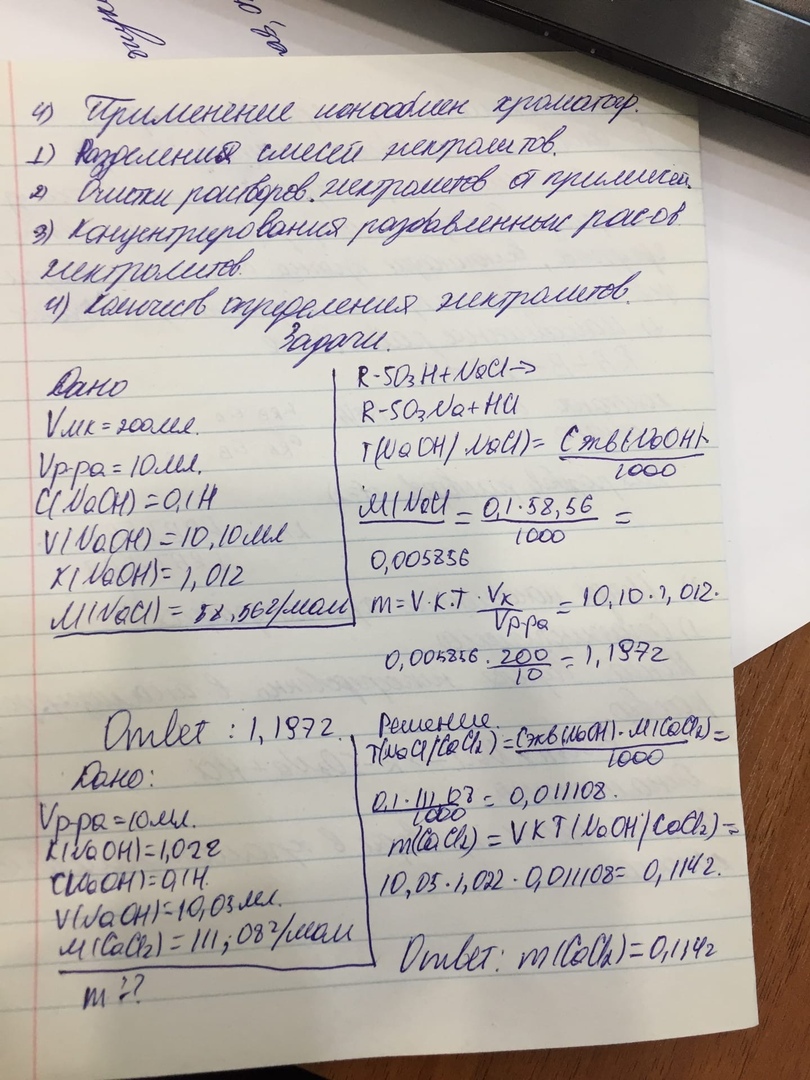 4) Применение ионообмен хроматогр.
1) Разделения смесей электролитов.
2) Очистки растворов электролитов от примисей.
3) Концентрирования разбавленных расов.
электролитов.
4) Количеств определения электролитов.
Задачи.
Дано
Vмк = 200мл.
Vр-ра = 10мл.
C(NaOH) = 0,1Н
V(NaOH) = 10,10мл
K(NaOH) = 1,012
M(NaCl) = 58,56г/моль
R-SO₃H + NaCl →
R-SO₃Na + HCl
T(NaOH/NaCl) = Cэкв(NaOH)·
1000
M(NaCl = 0,1·58,56 =
1000
0,005856
m = V·K·T · Vк/Vр-ра = 10,10·1,012·
0,005856 · 200/10 = 1,197г
Ответ : 1,197г.
Дано:
Vр-ра = 10мл.
K(NaOH) = 1,022
C(NaOH) = 0,1Н.
V(NaOH) = 10,03мл.
M(CaCl₂) = 111,08г/моль
m = ?
Решение.
T(NaCl/CaCl₂) = Cэкв(NaOH)·M(CaCl₂) =
1000
0,1·111,08/1000 = 0,011108.
m(CaCl₂) = VKT(NaOH/CaCl₂) =
10,03·1,022·0,011108 = 0,114г.
Ответ: m(CaCl₂) = 0,114г